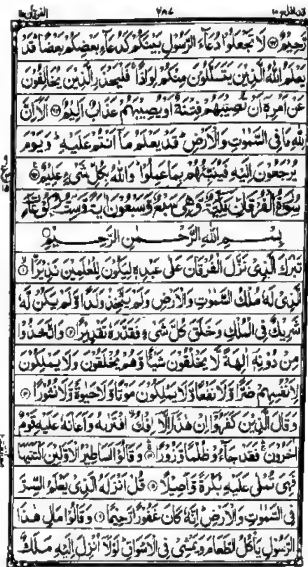 قد افلح ١٨ ٢٨٧ الفرقان ٢٥
رَّحِيْمٌ ۝ لَا تَجْعَلُوْا دُعَآءَ الرَّسُوْلِ بَيْنَكُمْ كَدُعَآءِ بَعْضِكُمْ بَعْضًا ؕ قَدْ
يَعْلَمُ اللّٰهُ الَّذِيْنَ يَتَسَلَّلُوْنَ مِنْكُمْ لِوَاذًا ۚ فَلْيَحْذَرِ الَّذِيْنَ يُخَالِفُوْنَ
عَنْ اَمْرِهٖۤ اَنْ تُصِيْبَهُمْ فِتْنَةٌ اَوْ يُصِيْبَهُمْ عَذَابٌ اَلِيْمٌ ۝ اَلَاۤ اِنَّ
لِلّٰهِ مَا فِى السَّمٰوٰتِ وَالْاَرْضِ ؕ قَدْ يَعْلَمُ مَاۤ اَنْتُمْ عَلَيْهِ ؕ وَيَوْمَ
يُرْجَعُوْنَ اِلَيْهِ فَيُنَبِّئُهُمْ بِمَا عَمِلُوْا ؕ وَاللّٰهُ بِكُلِّ شَىْءٍ عَلِيْمٌ ۝
سُوْرَةُ الْفُرْقَانِ مَكِّيَّةٌ وَّهِىَ سَبْعٌ وَّسَبْعُوْنَ اٰيَةً وَّسِتُّ
بِسْمِ اللّٰهِ الرَّحْمٰنِ الرَّحِيْمِ
تَبٰرَكَ الَّذِىْ نَزَّلَ الْفُرْقَانَ عَلٰى عَبْدِهٖ لِيَكُوْنَ لِلْعٰلَمِيْنَ نَذِيْرًا ۝
الَّذِىْ لَهٗ مُلْكُ السَّمٰوٰتِ وَالْاَرْضِ وَلَمْ يَتَّخِذْ وَلَدًا وَّلَمْ يَكُنْ لَّهٗ
شَرِيْكٌ فِى الْمُلْكِ وَخَلَقَ كُلَّ شَىْءٍ فَقَدَّرَهٗ تَقْدِيْرًا ۝ وَاتَّخَذُوْا
مِنْ دُوْنِهٖۤ اٰلِهَةً لَّا يَخْلُقُوْنَ شَيْئًا وَّهُمْ يُخْلَقُوْنَ وَلَا يَمْلِكُوْنَ
لِاَنْفُسِهِمْ ضَرًّا وَّلَا نَفْعًا وَّلَا يَمْلِكُوْنَ مَوْتًا وَّلَا حَيٰوةً وَّلَا نُشُوْرًا ۝
وَقَالَ الَّذِيْنَ كَفَرُوْۤا اِنْ هٰذَاۤ اِلَّاۤ اِفْكُ ࣙافْتَرٰىهُ وَاَعَانَهٗ عَلَيْهِ قَوْمٌ
اٰخَرُوْنَ ۚ فَقَدْ جَآءُوْ ظُلْمًا وَّزُوْرًا ۝ وَقَالُوْۤا اَسَاطِيْرُ الْاَوَّلِيْنَ اكْتَتَبَهَا
فَهِىَ تُمْلٰى عَلَيْهِ بُكْرَةً وَّاَصِيْلًا ۝ قُلْ اَنْزَلَهُ الَّذِىْ يَعْلَمُ السِّرَّ
فِى السَّمٰوٰتِ وَالْاَرْضِ ؕ اِنَّهٗ كَانَ غَفُوْرًا رَّحِيْمًا ۝ وَقَالُوْا مَالِ هٰذَا
الرَّسُوْلِ يَاْكُلُ الطَّعَامَ وَيَمْشِىْ فِى الْاَسْوَاقِ ؕ لَوْلَاۤ اُنْزِلَ اِلَيْهِ مَلَكٌ